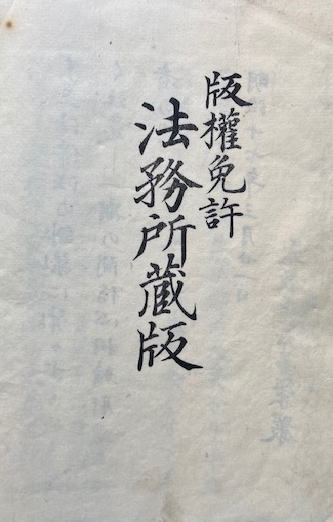 版權免許
法務所蔵版